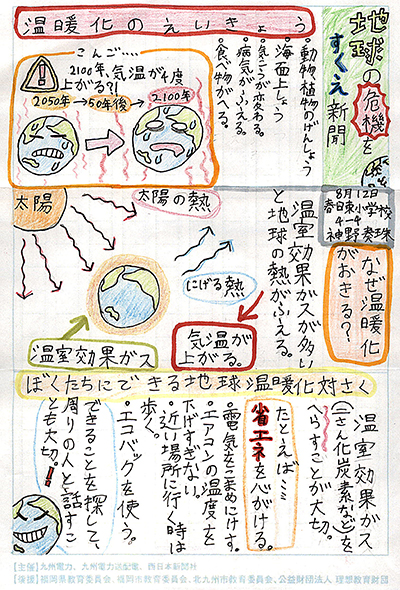 地球の危機を
すくえ新聞
8月12日
春日東小学校
4-4
神野奏珠
温暖化のえいきょう
・動物、植物のげんしょう
・海面上しょう
・気こうが変わる。
・病気がふえる。
・食べ物がへる。
こんご…
2100年、気温が4度
上がる?!
2050年→50年後→2100年
なぜ温暖化
がおきる?
温室効果ガスが多い
と地球の熱がふえる。
太陽
太陽の熱
にげる熱
気温が
上がる。
温室効果ガス
ぼくたちにできる地球温暖化対さく
温室効果ガス
(二さん化炭素など)を
へらすことが大切。
たとえば…
省エネを心がける。
・電気をこまめにけす。
・エアコンの温度を
下げすぎない。
・近い場所に行く時は
歩く。
・エコバックを使う。
できることを探して、
周りの人と話すこ
とも大切。!!
【主催】九州電力、九州電力送配電、西日本新聞社
【後援】福岡県教育委員会、福岡市教育委員会、北九州市教育委員会、公益財団法人 理想教育財団